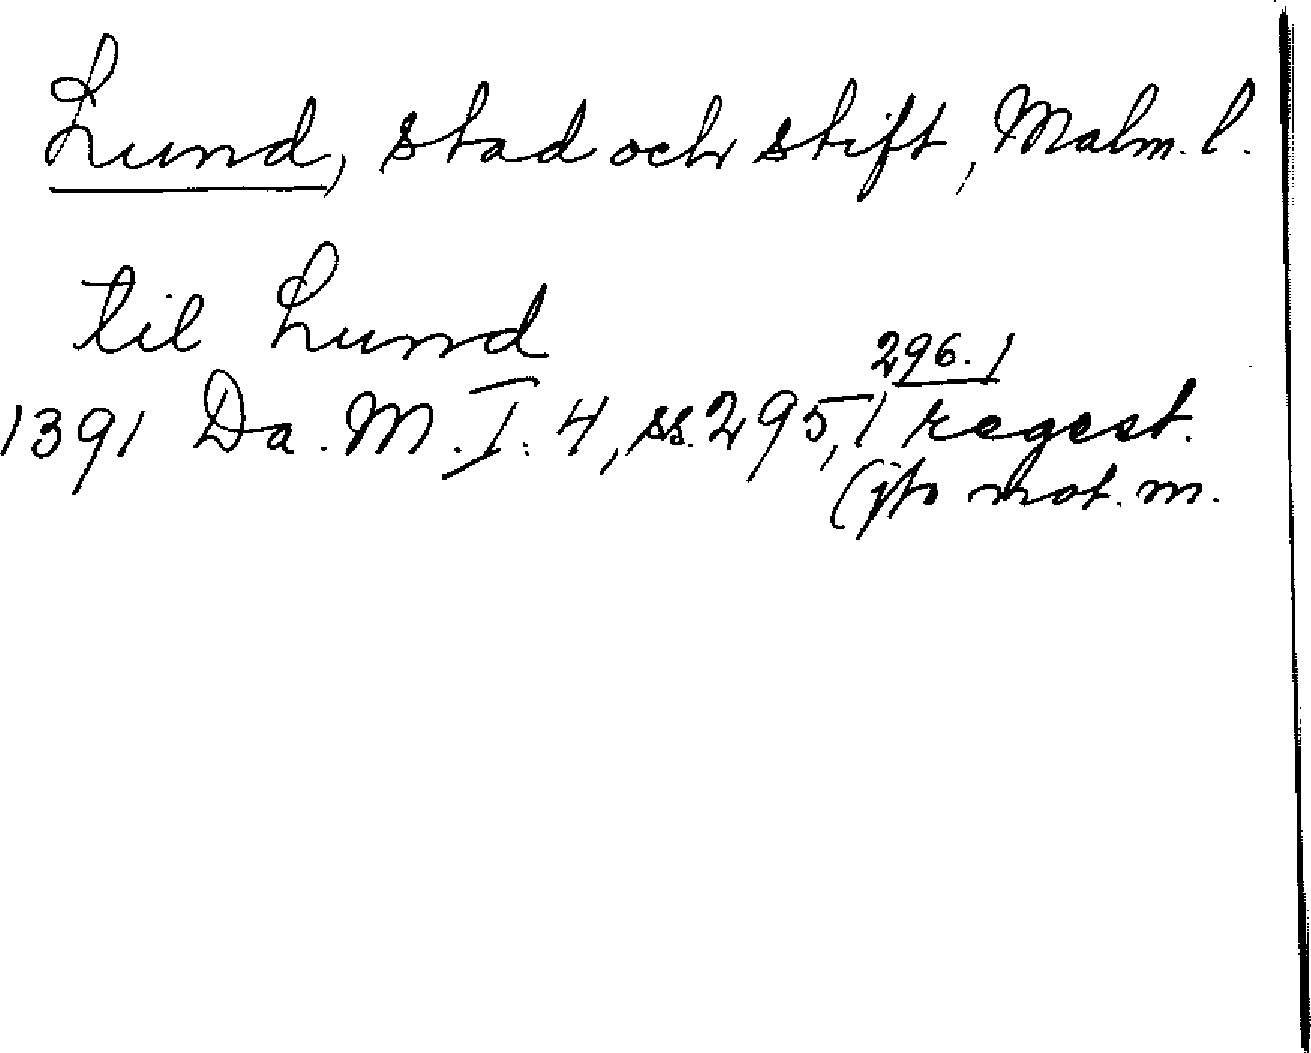 Lund, stad och stift, Malm. l.
til Lund
296. 1
1391 Da. M. I. 4, ss. 295, 1 regest.
(jfr not. m.